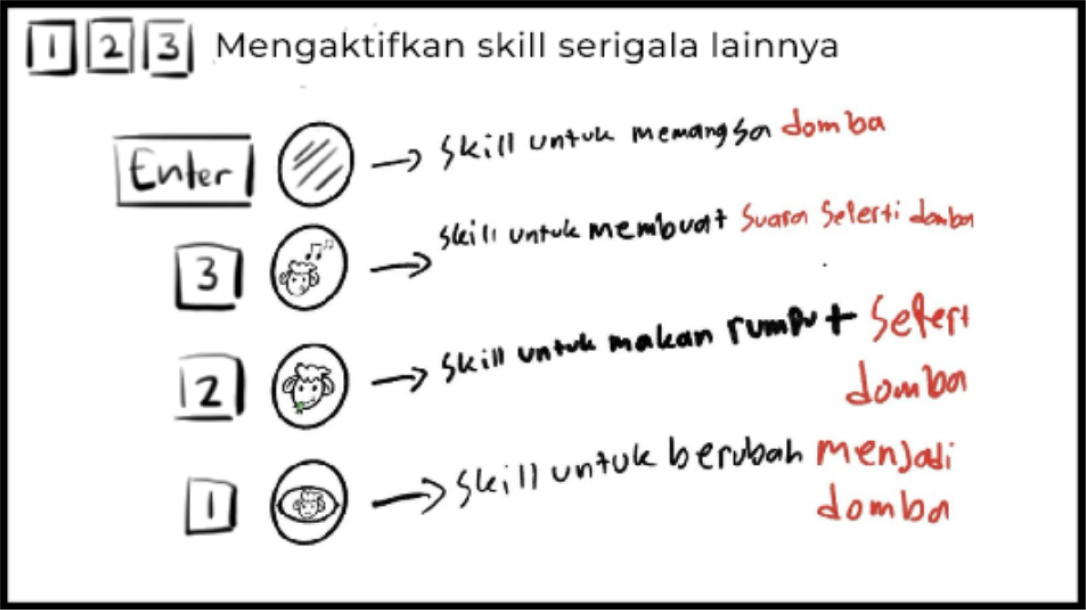 1 2 3 Mengaktifkan skill serigala lainnya
Enter skill untuk memangsa domba
3 skill untuk membuat suara seperti domba
2 skill untuk makan rumput seperti
domba
1 skill untuk berubah menjadi
domba